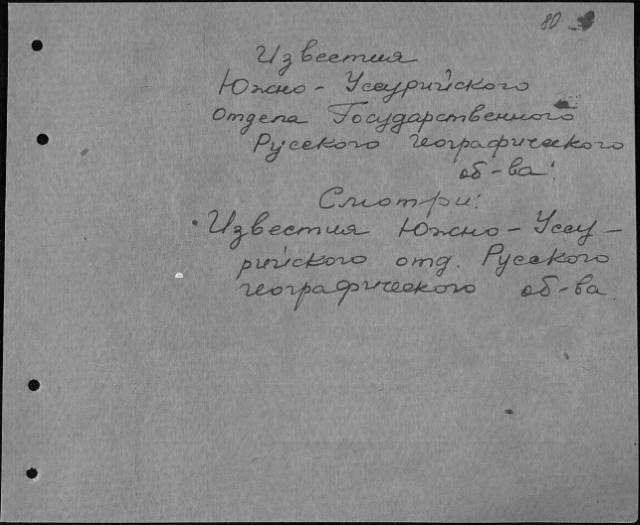 80
Известия
Южно - Уссурийского
отдела Государственного
Русского географического
об-ва.
Смотри:
Известия Южно - Уссу -
рийского отд. Русского
географического об-ва.